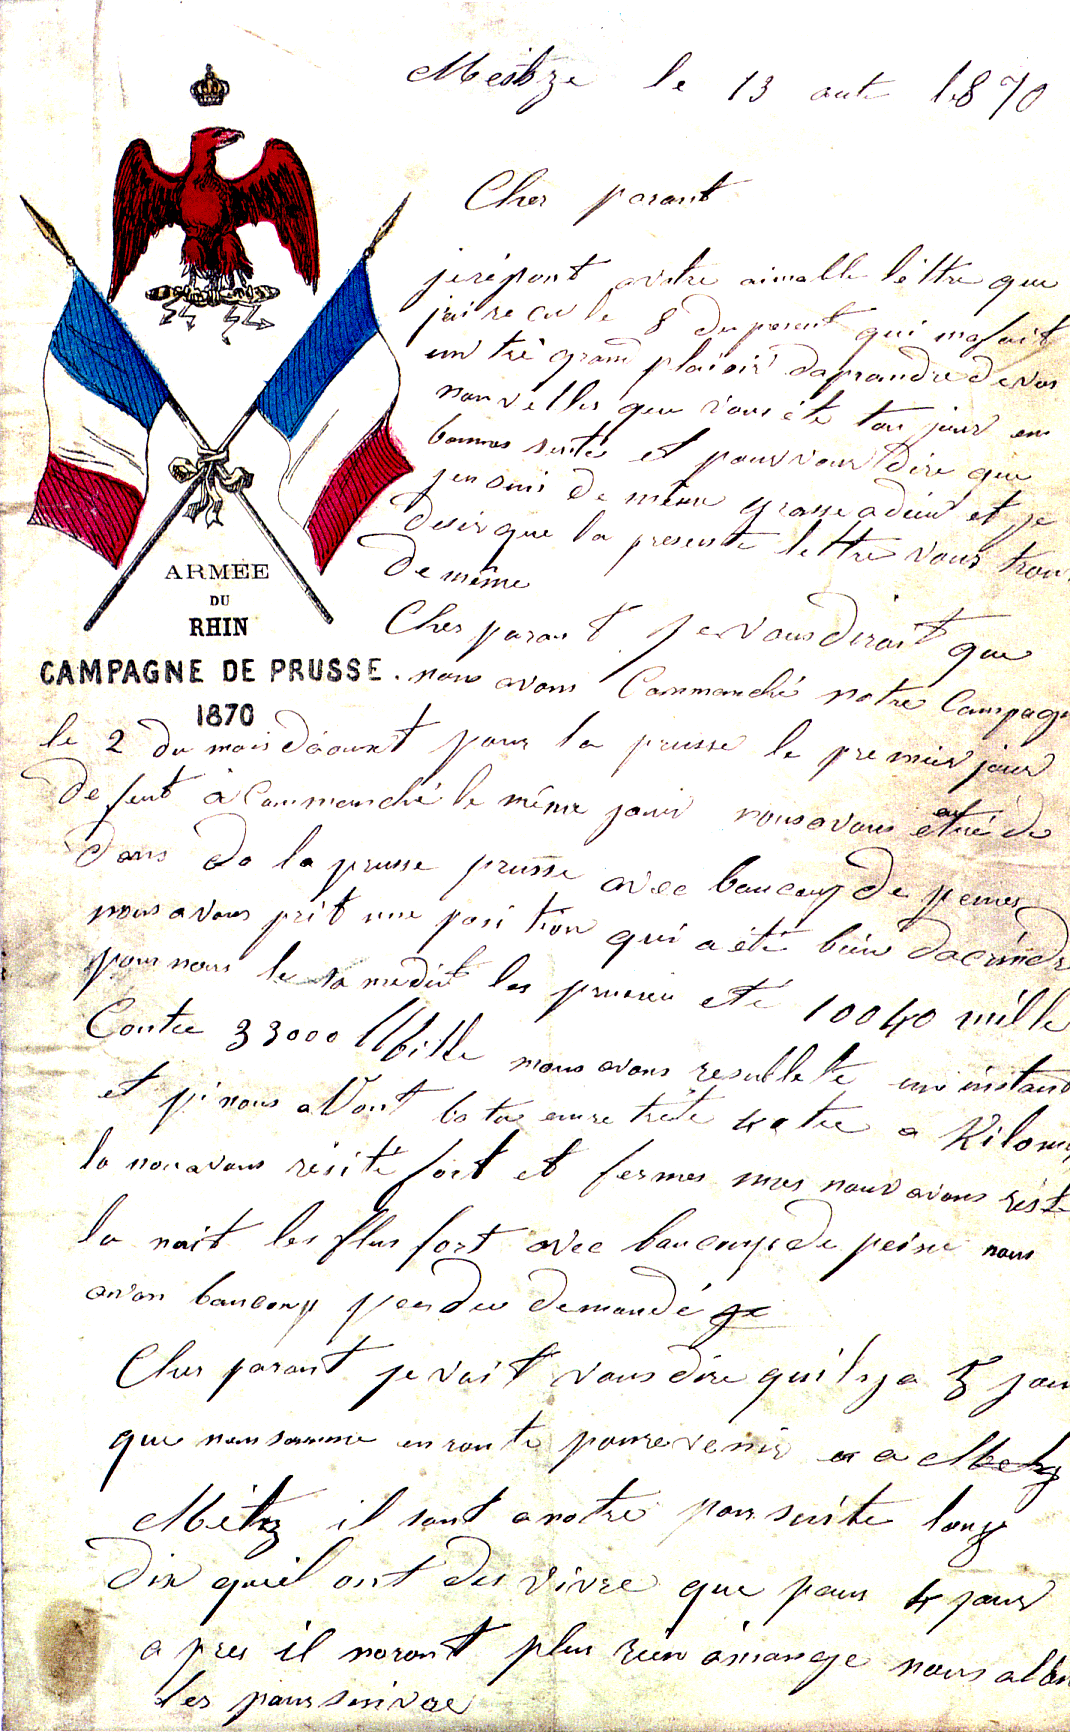 Meitze le 13 aute 1870
Cher parant
je répont avotre aimalle lèttre que
jai re cu le 8 du present qui ma fait
un trè grand plaisir daprandre de vos
nouvelles que vous ète tou jour en
bonnes senté et pour vour dire que
jen suis de mème grasse a dieu et je
desir que la presente lettre vous trou
de mème
ARMÉE
DU
RHIN
CAMPAGNE DE PRUSSE.
1870
Cher parant je vous dirait que
nous avons Commanché notre Campag
le 2 du mois daount pour la prusse le premier jour
de feut à Commanché le mème jour nous avons etié de
dans da la prusse prusse avec baucoup de peines
nous avons prit une posi tion qui a été bien dacrindr
pour nous le sa medit les prusien etè 10040 mille
Contre 33000 Mille nous avons resulletè un instan
et pi nous aVont bata enre trète katre a Kilom
la nou avons résité fort et fermes mes nour avons rest
la nait les plus fort avec baucoupe de peine nous
anon baucoup perdu demandé je
Cher parant je vait vous dire quil y a 5 jour
que nousomme en route poure venir a a Metz
Mètz il sont anotre pour suite long
din quil ont des vivre que pour 4 jour
a pres il noront plus rien amange nous allon
les poursuivre